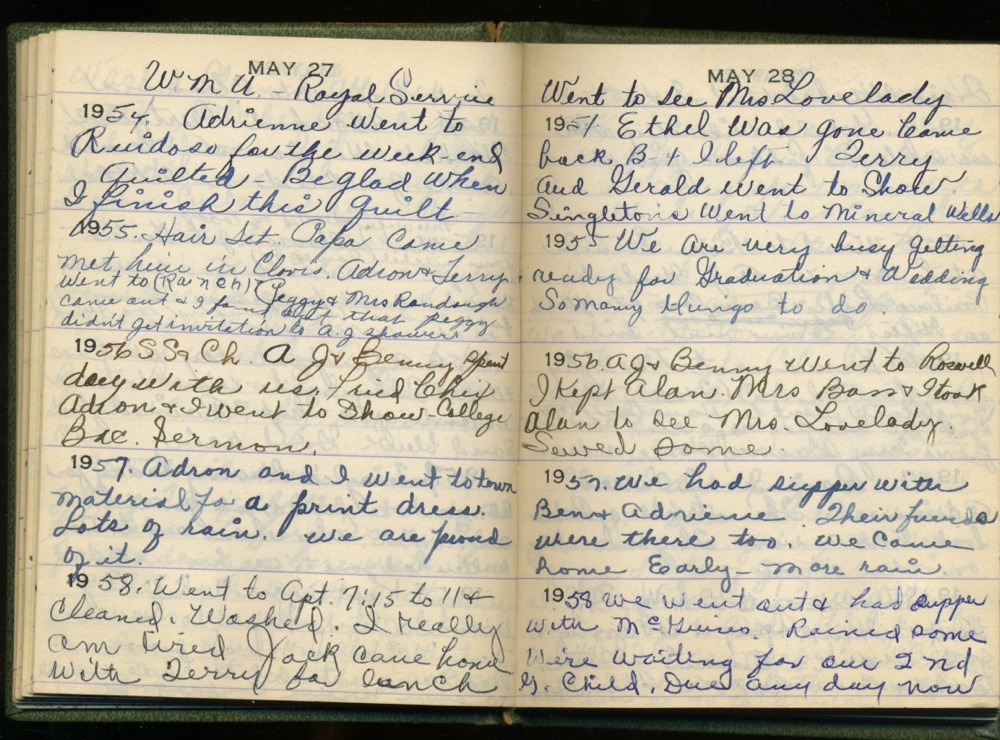 MAY 27
W M U. - Royal Service
1954. Adrienne went to
Ruidoso for the week-end
Quilted - Be glad when
I finish this quilt
1955. Hair Set. Papa Came
met him in Clovis. Adron & Terry
went to (Ranch) Peggy & Mrs Randough
came out & I found out that Peggy
didn't get invitation to A.J shower
1956 SS & Ch. A J & Benny spent
day with us, Fried Chic
Adron & I went to Show - College
Bac. Sermon.
1957. Adron and I went to town
material for a print dress.
Lots of rain. We are proud
of it.
1958. Went to Apt. 7:15 to 11 &
Cleaned. Washed. I really
am tired Jack came home
with Terry for lunch
MAY 28
Went to see Mrs Lovelady
1954 Ethel Was gone Came
back B - & I left. Terry
and Gerald went to Show.
Singletons Went to Mineral Wells
1955 We are very busy getting
ready for Graduation & Wedding
So many things to do.
1956. AJ & Benny went to Roswell
I Kept Alan. Mrs Bass & I took
Alan to see Mrs. Lovelady.
Sewed some.
1957. We had supper with
Ben & Adrienne. Their friends
were there too. We Came
home Early - more rain
1958 We went out & had supper
with McGuires. Rained some
We're waiting for our 2nd
G. Child. Due any day now